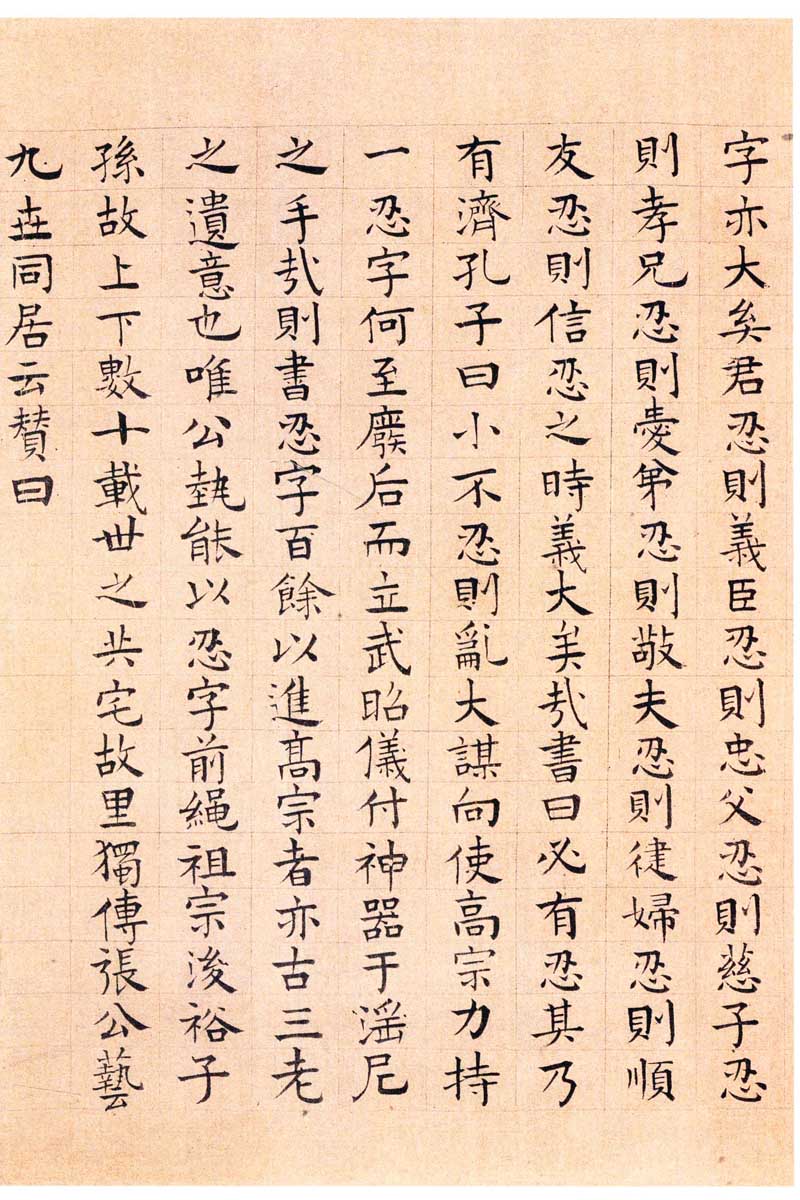 字亦大矣君忍則義臣忍則忠父忍則慈子忍
則孝兄忍則愛弟忍則敬夫忍則徤婦忍則順
友忍則信忍之時義大矣哉書曰必有忍其乃
有濟孔子曰小不忍則亂大謀向使高宗力持
一忍字何至廢后而立武昭儀付神器于滛尼
之手哉則書忍字百餘以進髙宗者亦古三老
之遺意也唯公埶能以忍字前繩祖宗浚裕子
孫故上下數十載世之共宅故里獨傳張公藝
九世同居云賛曰